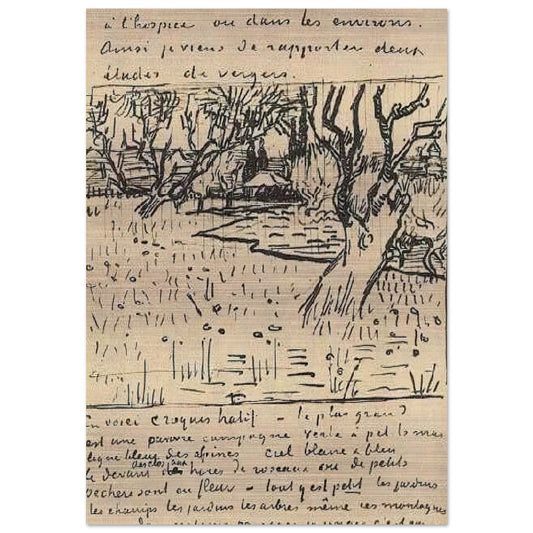 à l'hospice ou dans les environs.
Ainsi je viens de rapporter deux
études de vergers.
En voici croquis hatif – le plus grand
est une pauvre campagne verte à petits mas
ligne bleue des alpines ciel blanc & bleu
le devant des clos aux haies de roseaux où de petits
pechers sont en fleur – tout y est petit les jardins
les champs les jardins les arbres même ces montagnes